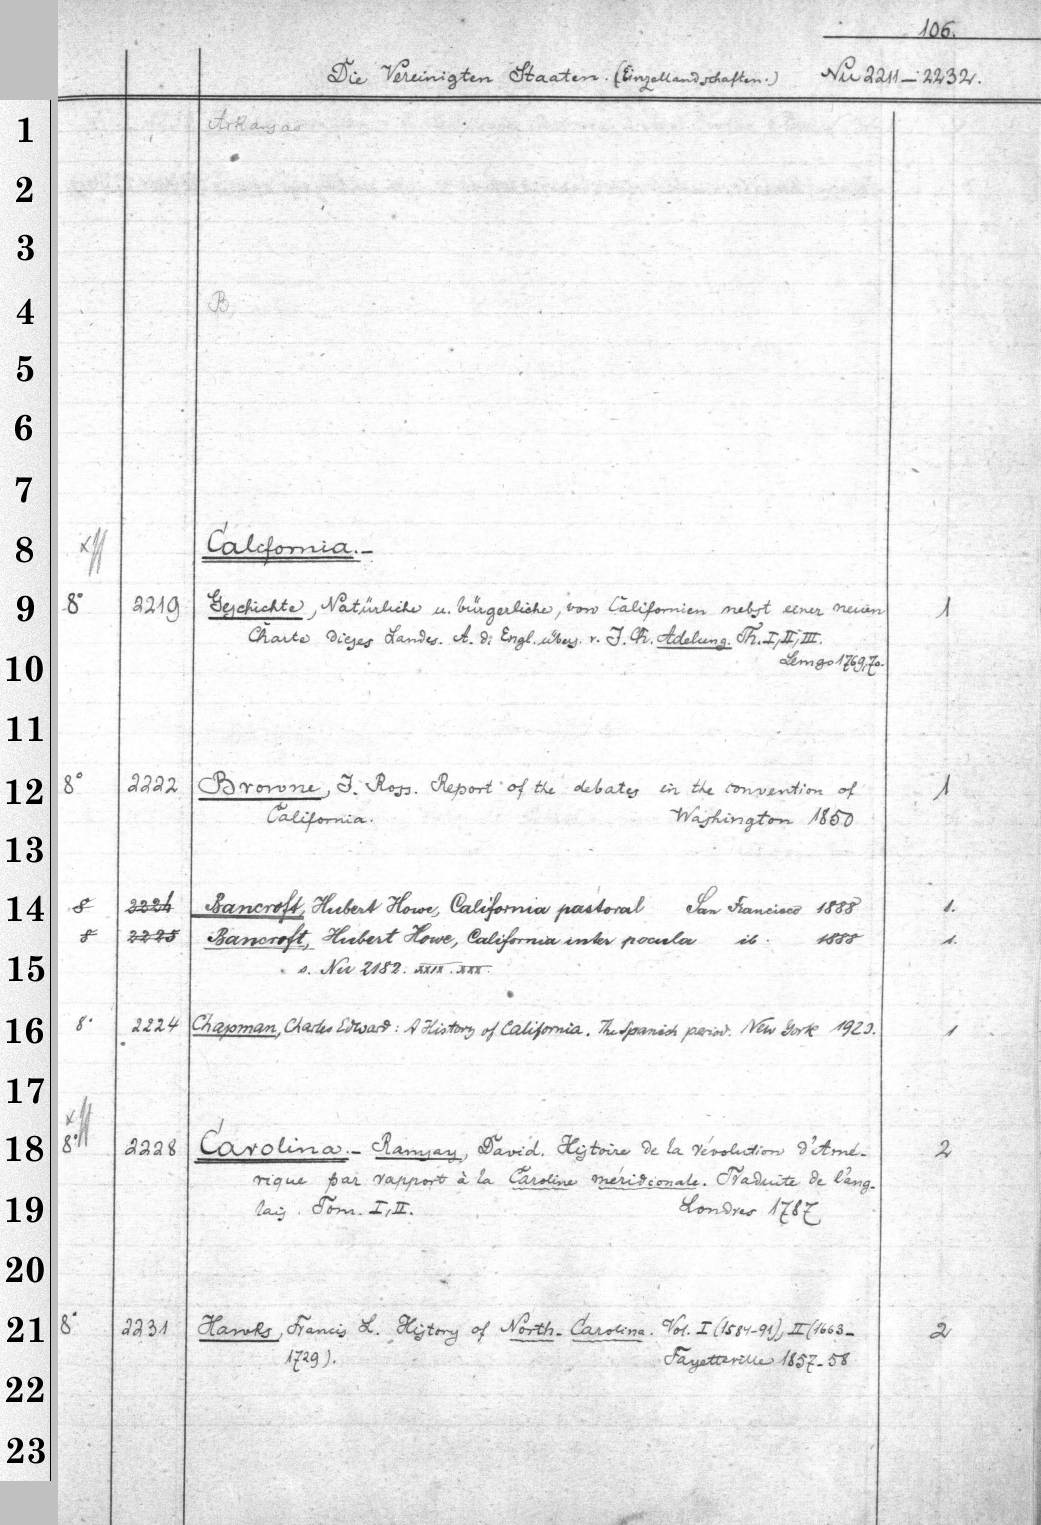 106.
Die Vereinigten Staaten. (Einzellandschaften.) Nu 2211–2232.
1 Arkansas
2
3
4 B
5
6
7
8 California.–
9 8° 2219 Geschichte, Natürliche u. bürgerliche, von Californien nebst einer neuen 1
Charte dieses Landes. A. d. Engl. übers. v. J. Ch. Adelung. Th. I, II, III.
10 Lemgo 1769,70.
11
12 8° 2222 Browne, J. Ross. Report of the debates in the convention of 1
California. Washington 1850
13
14 8 2224 Bancroft, Hubert Howe, California pastoral San Francisco 1888 1.
8 2225 Bancroft, Hubert Howe, California inter pocula ib. 1888 1.
15 s. Nu 2182. XXIX. XXX.
16 8° 2224 Chapman, Charles Edward: A History of California. The Spanish period. New York 1923. 1
17
18 8° 2228 Carolina.– Ramsay, David. Histoire de la révolution d'Amé- 2
rique par rapport à la Caroline méridionale. Traduite de l'ang-
19 lais. Tom. I, II. Londres 1787
20
21 8° 2231 Hawks, Francis L. History of North-Carolina. Vol. I (1584-91), II (1663- 2
1729). Fayetteville 1857-58
22
23